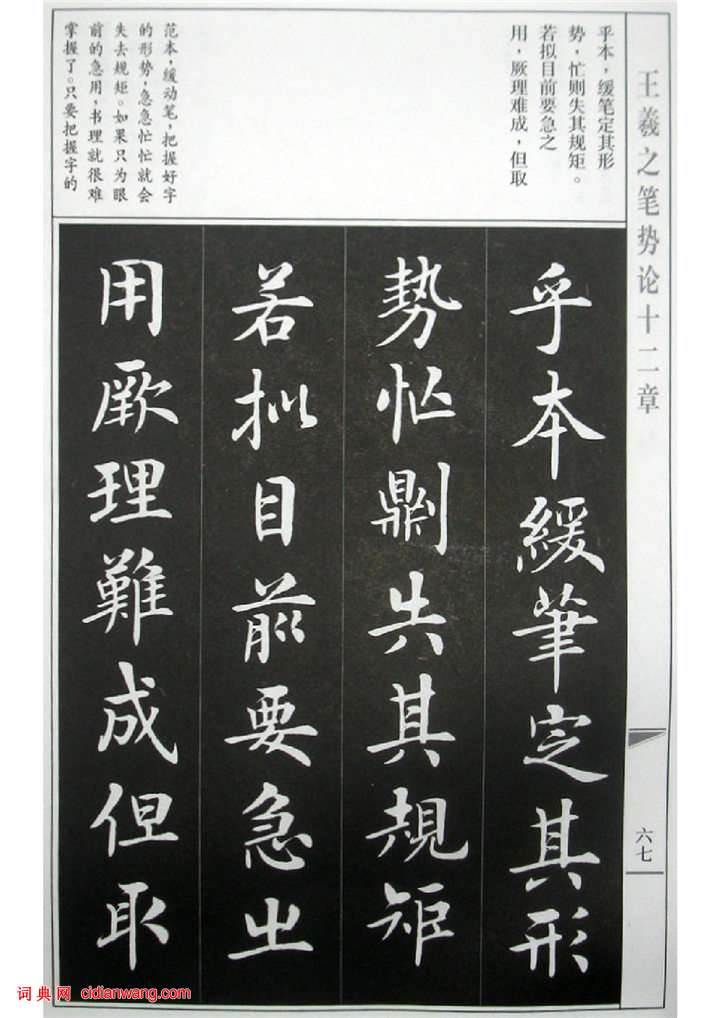 王羲之笔势论十二章
六七
乎本，缓笔定其形
势，忙则失其规矩。
若拟目前要急之
用，厥理难成，但取
范本，缓动笔，把握好字
的形势，急急忙忙就会
失去规矩。如果只为眼
前的急用，书理就很难
掌握了。只要把握字的
乎本緩筆定其形
勢忙劓失其規矩
若拟目前要急之
用厥理難成但取
词典网 cidianwang.com